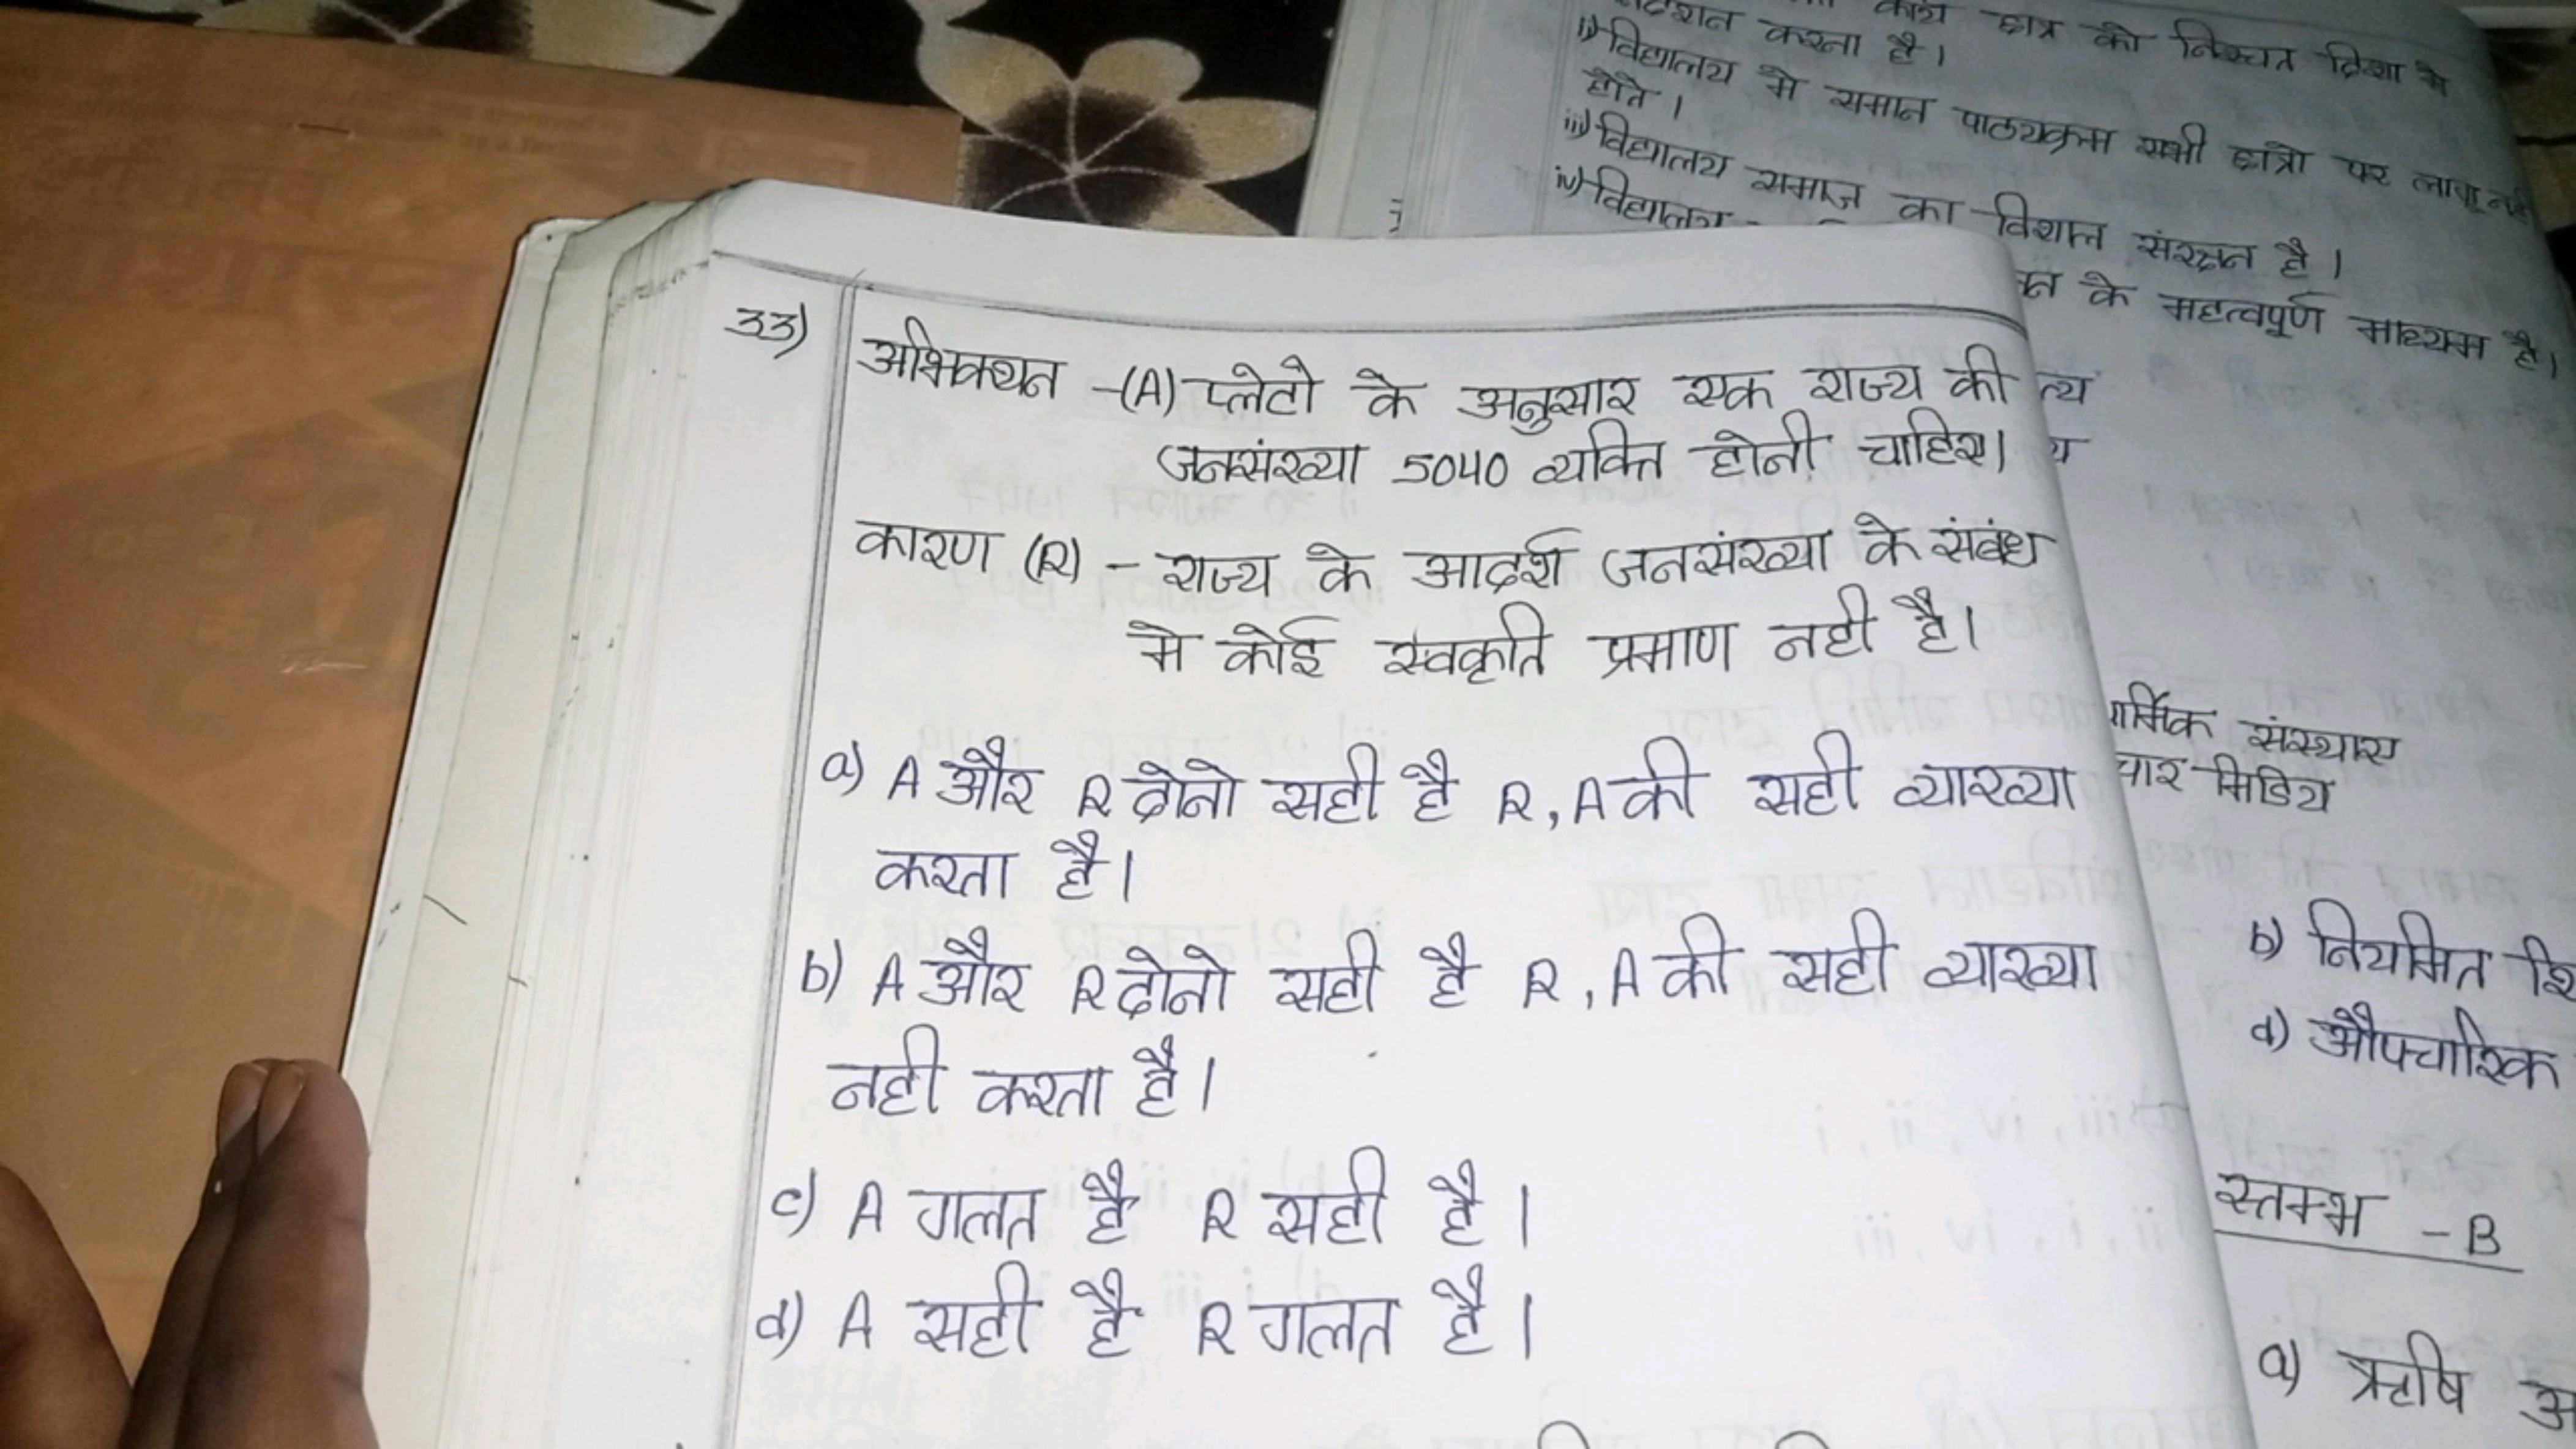 छात्र को निश्चत दिशा मे
करना है।
ii) विद्यालय मे समान पाठ्यक्रम सभी छात्रो पर लागू नही
होते।
iii) विद्यालय समाज का विशाल संरक्षन है।
iv) विद्यालय
के महत्वपूर्ण माध्यम है।
33)
अभिकथन -(A) प्लेटो के अनुसार एक राज्य की
जनसंख्या 5040 व्यक्ति होनी चाहिए।
कारण (R) - राज्य के आदर्श जनसंख्या के संबंध
मे कोई स्वकृति प्रमाण नही है।
a) A और R दोनो सही है R, A की सही व्याख्या
करता है।
b) A और R दोनो सही है R, A की सही व्याख्या
नही करता है।
c) A गलत है R सही है।
d) A सही है R गलत है।
संस्थाए
मिडिय
b) नियमित शि
d) औपचारिक
स्तम्भ - B
a) ऋषि अ